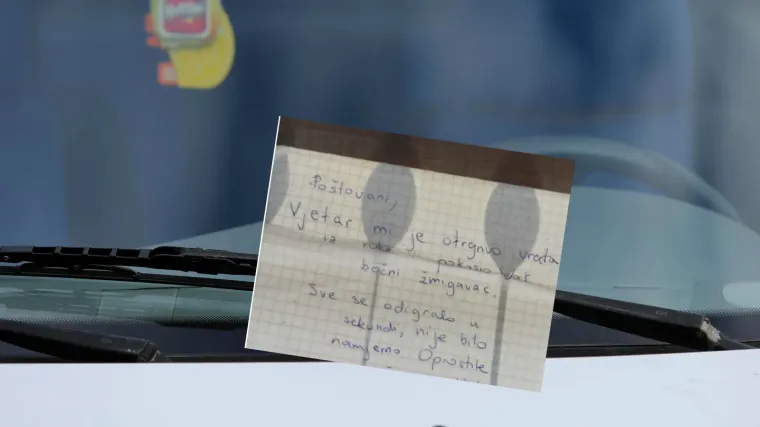 Poštovani,
Vjetar mi je otrgnuo vrata
iz ruke i pokosio vat
bočni žmigavac.
Sve se odigralo u
sekundi, nije bilo
namjerno. Oprostite